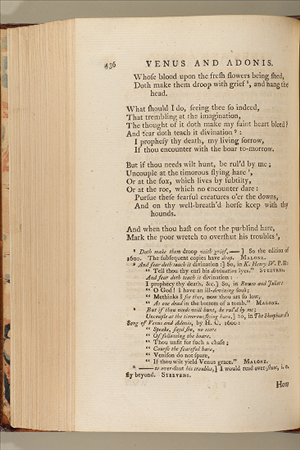 436 VENUS AND ADONIS.
Whose blood upon the fresh flowers being shed,
Doth make them droop with grief ⁸, and hang the
head.
What should I do, seeing thee so indeed,
That trembling at the imagination,
The thought of it doth make my faint heart bleed?
And fear doth teach it divination ⁹:
I prophesy thy death, my living sorrow,
If thou encounter with the boar to-morrow.
But if thou needs wilt hunt, be rul'd by me;
Uncouple at the timorous flying hare ¹,
Or at the fox, which lives by subtilty,
Or at the roe, which no encounter dare:
Pursue these fearful creatures o'er the downs,
And on thy well-breath'd horse keep with thy
hounds.
And when thou hast on foot the purblind hare,
Mark the poor wretch to overshut his troubles ²,
⁸ Doth make them droop with grief, — ] So the edition of
1600. The subsequent copies have drop. MALONE.
⁹ And fear doth teach it divination:] So, in K. Henry IV. P. II:
“ Tell thou thy earl his divination lyes.” STEEVENS.
And fear doth teach it divination:
I prophecy thy death, &c.] So, in Romeo and Juliet:
“ O God! I have an ill-divining soul;
“ Methinks I see thee, now thou art so low,
“ As one dead in the bottom of a tomb.” MALONE.
¹ But if thou needs wilt hunt, be rul'd by me;
Uncouple at the timorous flying hare,] So, in The Shepheard's
Song of Venus and Adonis, by H. C. 1600:
“ Speake, sayd she, no more
“ Of following the boare,
“ Thou unfit for such a chase;
“ Course the fearful hare,
“ Venison do not spare,
“ If thou wilt yield Venus grace.” MALONE.
² — to overshut his troubles,] I would read overshoot, i.e.
fly beyond. STEEVENS.
How